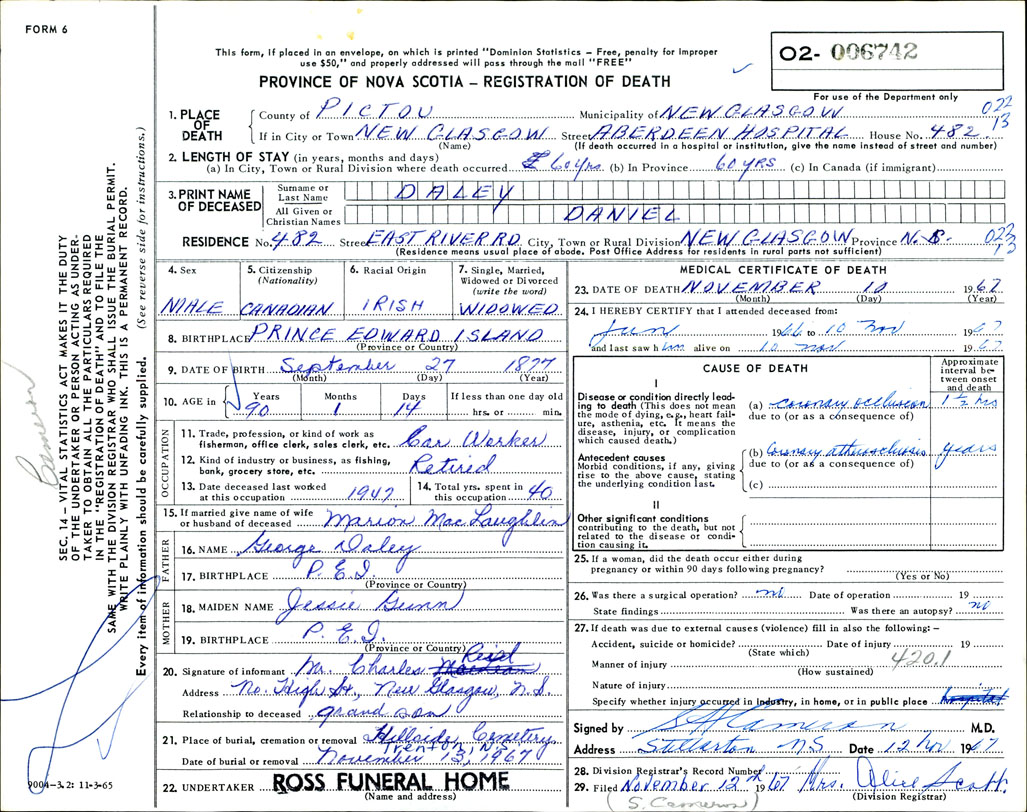 FORM 6
This form, if placed in an envelope, on which is printed "Dominion Statistics – Free, penalty for improper
use $50," and properly addressed will pass through the mail "FREE"
PROVINCE OF NOVA SCOTIA – REGISTRATION OF DEATH
O2- 006742
For use of the Department only
022
13
1. PLACE OF DEATH
County of PICTOU Municipality of NEW GLASGOW
If in City or Town NEW GLASGOW Street ABERDEEN HOSPITAL House No. 482
(Name) (If death occurred in a hospital or institution, give the name instead of street and number)
2. LENGTH OF STAY (in years, months and days)
(a) In City, Town or Rural Division where death occurred 60 yrs (b) In Province 60 YRS (c) In Canada (if immigrant)
3. PRINT NAME OF DECEASED
Surname or Last Name DALEY
All Given or Christian Names DANIEL
RESIDENCE No. 482 Street EAST RIVER RD. City, Town or Rural Division NEW GLASGOW Province N.S. 023
13
(Residence means usual place of abode. Post Office Address for residents in rural parts not sufficient)
4. Sex 5. Citizenship (Nationality) 6. Racial Origin 7. Single, Married, Widowed or Divorced (write the word)
MALE CANADIAN IRISH WIDOWED
8. BIRTHPLACE PRINCE EDWARD ISLAND
(Province or Country)
9. DATE OF BIRTH September 27 1877
(Month) (Day) (Year)
10. AGE in Years Months Days If less than one day old
90 1 14 hrs. or min.
OCCUPATION
11. Trade, profession, or kind of work as fisherman, office clerk, sales clerk, etc. Car Worker
12. Kind of industry or business, as fishing, bank, grocery store, etc. Retired
13. Date deceased last worked at this occupation 1947 14. Total yrs. spent in this occupation 40
15. If married give name of wife or husband of deceased Marion MacLaughlin
FATHER
16. NAME George Daley
17. BIRTHPLACE P.E.I.
(Province or Country)
MOTHER
18. MAIDEN NAME Jessie Gunn
19. BIRTHPLACE P.E.I.
(Province or Country)
20. Signature of informant Mr. Charles Reid
Address No. High St., New Glasgow, N.S.
Relationship to deceased grand son
21. Place of burial, cremation or removal Hillside Cemetery
Trenton, N.S.
Date of burial or removal November 13, 1967
22. UNDERTAKER ROSS FUNERAL HOME
(Name and address)
9004-3.2: 11-3-65
MEDICAL CERTIFICATE OF DEATH
23. DATE OF DEATH NOVEMBER 10 1967
(Month) (Day) (Year)
24. I HEREBY CERTIFY that I attended deceased from:
Jun 1966 to 10 Nov 1967
and last saw him alive on 10 Nov 1967
CAUSE OF DEATH
Approximate interval between onset and death
I
Disease or condition directly leading to death (This does not mean the mode of dying, e.g., heart failure, asthenia, etc. It means the disease, injury, or complication which caused death.)
(a) coronary occlusion 1½ hrs
due to (or as a consequence of)
Antecedent causes
Morbid conditions, if any, giving rise to the above cause, stating the underlying condition last.
(b) coronary atherosclerosis years
due to (or as a consequence of)
(c)
II
Other significant conditions
contributing to the death, but not related to the disease or condition causing it.
25. If a woman, did the death occur either during
pregnancy or within 90 days following pregnancy?
(Yes or No)
26. Was there a surgical operation? no Date of operation 19
State findings Was there an autopsy? no
27. If death was due to external causes (violence) fill in also the following: –
Accident, suicide or homicide? Date of injury 19
(State which)
420.1
Manner of injury
(How sustained)
Nature of injury
Specify whether injury occurred in industry, in home, or in public place hospital
Signed by S A Cameron M.D.
Address Stellarton NS Date 12 Nov 1967
28. Division Registrar's Record Number
29. Filed November 12th 1967 Mrs. Alice Scott
(Division Registrar)
(S. Cameron)
Cameron
SEC. 14 – VITAL STATISTICS ACT MAKES IT THE DUTY
OF THE UNDERTAKER OR PERSON ACTING AS UNDER-
TAKER TO OBTAIN ALL THE PARTICULARS REQUIRED
IN THE "REGISTRATION OF DEATH" AND TO FILE THE
SAME WITH THE DIVISION REGISTRAR WHO SHALL ISSUE THE BURIAL PERMIT.
WRITE PLAINLY WITH UNFADING INK. THIS IS A PERMANENT RECORD.
Every item of information should be carefully supplied. (See reverse side for instructions.)